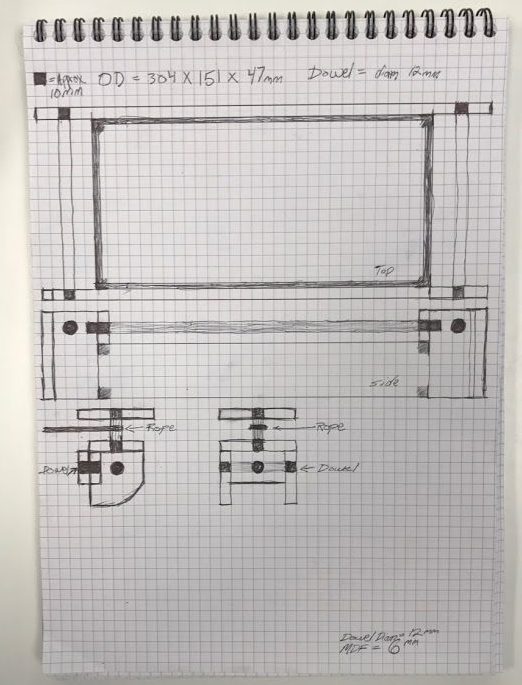 ■ = Aprox OD = 304 X 151 X 47mm Dowel = diam 12mm
10mm
Top
side
Rope
Rope
Dowel
Dowel
Dowel Diam = 12mm
MDF = 6mm